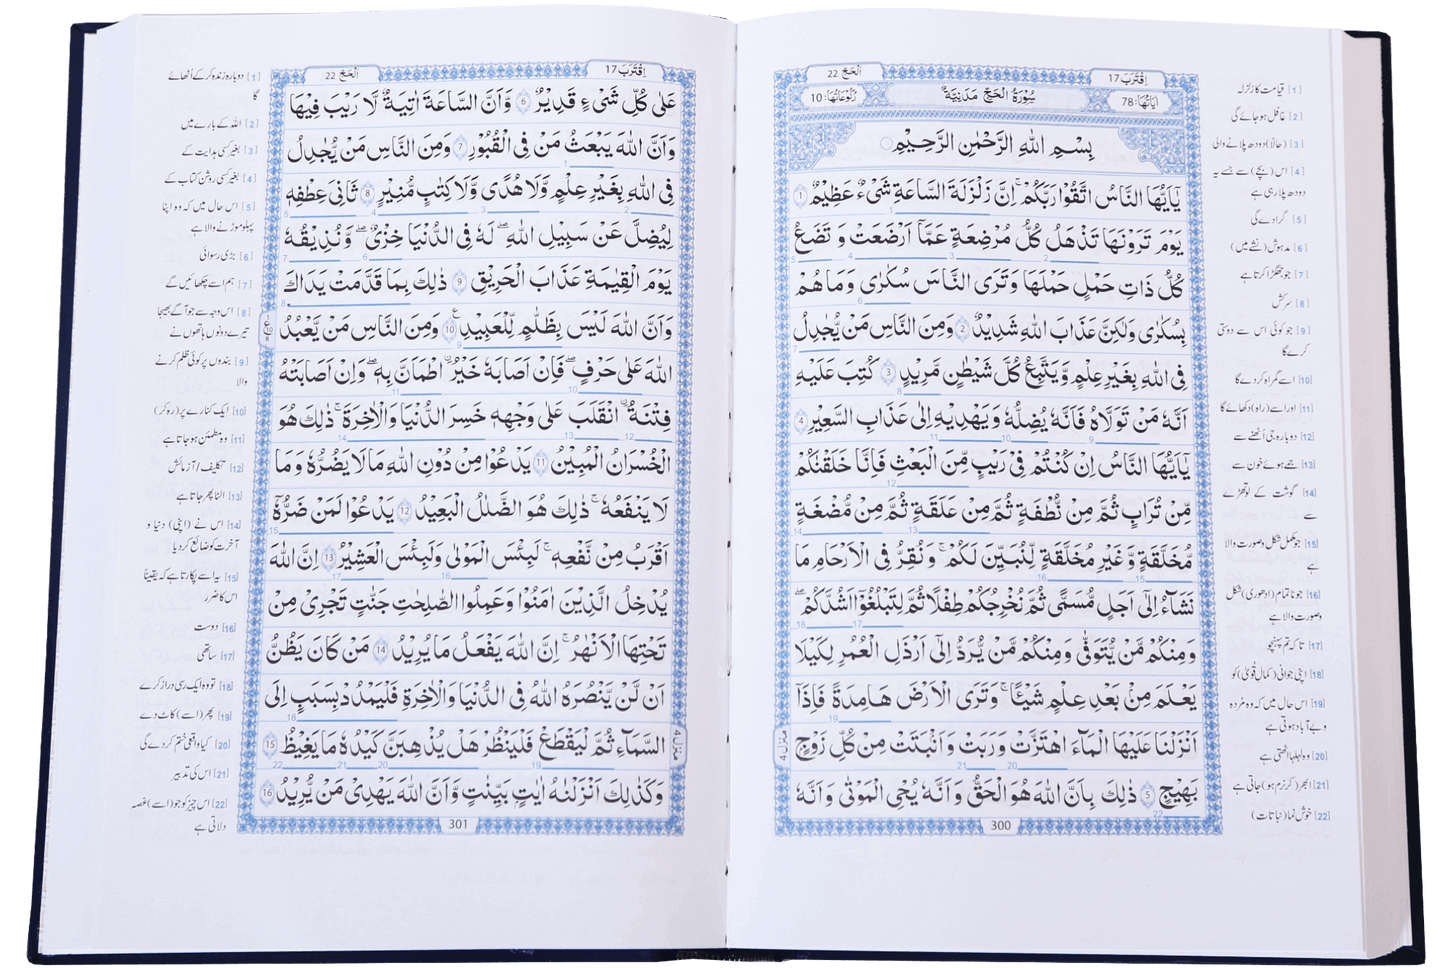 اِقْتَرَبَ 17
اَلْحَجّ 22
اٰيَاتُهَا: 78
سُوْرَةُ الْحَجِّ مَدَنِيَّةٌ
رُكُوْعَاتُهَا: 10
بِسْمِ اللّٰهِ الرَّحْمٰنِ الرَّحِيْمِ
يٰۤاَيُّهَا النَّاسُ اتَّقُوْا رَبَّكُمْ ۚ اِنَّ زَلْزَلَةَ السَّاعَةِ شَیْءٌ عَظِيْمٌ 1
يَوْمَ تَرَوْنَهَا تَذْهَلُ كُلُّ مُرْضِعَةٍ عَمَّاۤ اَرْضَعَتْ وَ تَضَعُ
كُلُّ ذَاتِ حَمْلٍ حَمْلَهَا وَتَرَى النَّاسَ سُكٰرٰى وَمَا هُمْ
بِسُكٰرٰى وَلٰكِنَّ عَذَابَ اللّٰهِ شَدِيْدٌ 2 وَمِنَ النَّاسِ مَنْ يُّجَادِلُ
فِى اللّٰهِ بِغَيْرِ عِلْمٍ وَّيَتَّبِعُ كُلَّ شَيْطٰنٍ مَّرِيْدٍ 3 كُتِبَ عَلَيْهِ
اَنَّهٗ مَنْ تَوَلَّاهُ فَاَنَّهٗ يُضِلُّهٗ وَ يَهْدِيْهِ اِلٰى عَذَابِ السَّعِيْرِ 4
يٰۤاَيُّهَا النَّاسُ اِنْ كُنْتُمْ فِىْ رَيْبٍ مِّنَ الْبَعْثِ فَاِنَّا خَلَقْنٰكُمْ
مِّنْ تُرَابٍ ثُمَّ مِنْ نُّطْفَةٍ ثُمَّ مِنْ عَلَقَةٍ ثُمَّ مِنْ مُّضْغَةٍ
مُّخَلَّقَةٍ وَّغَيْرِ مُخَلَّقَةٍ لِّنُبَيِّنَ لَكُمْ ۚ وَنُقِرُّ فِى الْاَرْحَامِ مَا
نَشَآءُ اِلٰٓى اَجَلٍ مُّسَمًّى ثُمَّ نُخْرِجُكُمْ طِفْلًا ثُمَّ لِتَبْلُغُوْۤا اَشُدَّكُمْ ۖ
وَمِنْكُمْ مَّنْ يُّتَوَفّٰى وَمِنْكُمْ مَّنْ يُّرَدُّ اِلٰٓى اَرْذَلِ الْعُمُرِ لِكَيْلَا
يَعْلَمَ مِنْۢ بَعْدِ عِلْمٍ شَيْـًٔا ۚ وَتَرَى الْاَرْضَ هَامِدَةً فَاِذَاۤ
اَنْزَلْنَا عَلَيْهَا الْمَآءَ اهْتَزَّتْ وَرَبَتْ وَاَنْۢبَتَتْ مِنْ كُلِّ زَوْجٍۭ
بَهِيْجٍ 5 ذٰلِكَ بِاَنَّ اللّٰهَ هُوَ الْحَقُّ وَاَنَّهٗ يُحْىِ الْمَوْتٰى وَاَنَّهٗ
300
منزل 4
[1] قیامت کا زلزلہ
[2] غافل ہو جائے گی
[3] (حالًا) دودھ پلانے والی
[4] اس (بچے) سے جسے یہ
دودھ پلا رہی ہے
[5] گرا دے گی
[6] مدہوش (نشے میں)
[7] جو جھگڑا کرتا ہے
[8] سرکش
[9] جو کوئی اس سے دوستی
کرے گا
[10] اسے گمراہ کر دے گا
[11] اور اسے (راہ) دکھائے گا
[12] دوبارہ جی اُٹھنے سے
[13] جمے ہوئے خون سے
[14] گوشت کے لوتھڑے
سے
[15] جو مکمل شکل و صورت والا
ہے
[16] جو ناتمام (ادھوری) شکل
و صورت والا ہے
[17] تا کہ تم پہنچو
[18] اپنی جوانی (کمال قُوٰی) کو
[19] اس حال میں کہ وہ مُردہ
و بے آباد ہوتی ہے
[20] وہ لہلہا اٹھتی ہے
[21] ابھر (کر نرم ہو) جاتی ہے
[22] خوش نما (نباتات)
اِقْتَرَبَ 17
اَلْحَجّ 22
عَلٰى كُلِّ شَیْءٍ قَدِيْرٌ 6 وَّاَنَّ السَّاعَةَ اٰتِيَةٌ لَّا رَيْبَ فِيْهَا
وَاَنَّ اللّٰهَ يَبْعَثُ مَنْ فِى الْقُبُوْرِ 7 وَمِنَ النَّاسِ مَنْ يُّجَادِلُ
فِى اللّٰهِ بِغَيْرِ عِلْمٍ وَّلَا هُدًى وَّلَا كِتٰبٍ مُّنِيْرٍ 8 ثَانِىَ عِطْفِهٖ
لِيُضِلَّ عَنْ سَبِيْلِ اللّٰهِ ۖ لَهٗ فِى الدُّنْيَا خِزْىٌ ۖ وَّنُذِيْقُهٗ
يَوْمَ الْقِيٰمَةِ عَذَابَ الْحَرِيْقِ 9 ذٰلِكَ بِمَا قَدَّمَتْ يَدَاكَ
وَاَنَّ اللّٰهَ لَيْسَ بِظَلَّامٍ لِّلْعَبِيْدِ 10 وَمِنَ النَّاسِ مَنْ يَّعْبُدُ
اللّٰهَ عَلٰى حَرْفٍ ۖ فَاِنْ اَصَابَهٗ خَيْرُ ࣙاطْمَاَنَّ بِهٖ ۖ وَاِنْ اَصَابَتْهُ
فِتْنَةُ ࣙانْقَلَبَ عَلٰى وَجْهِهٖ خَسِرَ الدُّنْيَا وَالْاٰخِرَةَ ۚ ذٰلِكَ هُوَ
الْخُسْرَانُ الْمُبِيْنُ 11 يَدْعُوْا مِنْ دُوْنِ اللّٰهِ مَا لَا يَضُرُّهٗ وَمَا
لَا يَنْفَعُهٗ ۚ ذٰلِكَ هُوَ الضَّلٰلُ الْبَعِيْدُ 12 يَدْعُوْا لَمَنْ ضَرُّهٗۤ
اَقْرَبُ مِنْ نَّفْعِهٖ ۚ لَبِئْسَ الْمَوْلٰى وَلَبِئْسَ الْعَشِيْرُ 13 اِنَّ اللّٰهَ
يُدْخِلُ الَّذِيْنَ اٰمَنُوْا وَعَمِلُوا الصّٰلِحٰتِ جَنّٰتٍ تَجْرِىْ مِنْ
تَحْتِهَا الْاَنْهٰرُ ۚ اِنَّ اللّٰهَ يَفْعَلُ مَا يُرِيْدُ 14 مَنْ كَانَ يَظُنُّ
اَنْ لَّنْ يَّنْصُرَهُ اللّٰهُ فِى الدُّنْيَا وَالْاٰخِرَةِ فَلْيَمْدُدْ بِسَبَبٍ اِلَى
السَّمَآءِ ثُمَّ لْيَقْطَعْ فَلْيَنْظُرْ هَلْ يُذْهِبَنَّ كَيْدُهٗ مَا يَغِيْظُ 15
وَكَذٰلِكَ اَنْزَلْنٰهُ اٰيٰتٍۭ بَيِّنٰتٍ وَّاَنَّ اللّٰهَ يَهْدِىْ مَنْ يُّرِيْدُ 16
301
منزل 4
[1] دوبارہ زندہ کر کے اُٹھائے
گا
[2] اللہ کے بارے میں
[3] بغیر کسی ہدایت کے
[4] بغیر کسی روشن کتاب کے
[5] اس حال میں کہ وہ اپنا
پہلو موڑنے والا ہے
[6] بڑی رسوائی
[7] ہم اسے چکھائیں گے
[8] اس وجہ سے جو آگے بھیجا
تیرے دونوں ہاتھوں نے
[9] بندوں پر کوئی ظلم کرنے
والا
[10] ایک کنارے پر (رہ کر)
[11] وہ مطمئن ہو جاتا ہے
[12] تکلیف/ آزمائش
[13] الٹا پھر جاتا ہے
[14] اس نے (اپنی) دنیا و
آخرت کو ضائع کر دیا
[15] یہ اسے پکارتا ہے کہ یقیناً
اس کا ضرر
[16] دوست
[17] ساتھی
[18] تو وہ ایک رسی دراز کرے
[19] پھر (اسے) کاٹ دے
[20] کیا واقعی ختم کر دے گی
[21] اس کی تدبیر
[22] اس چیز کو جو (اسے) غصہ
دلاتی ہے